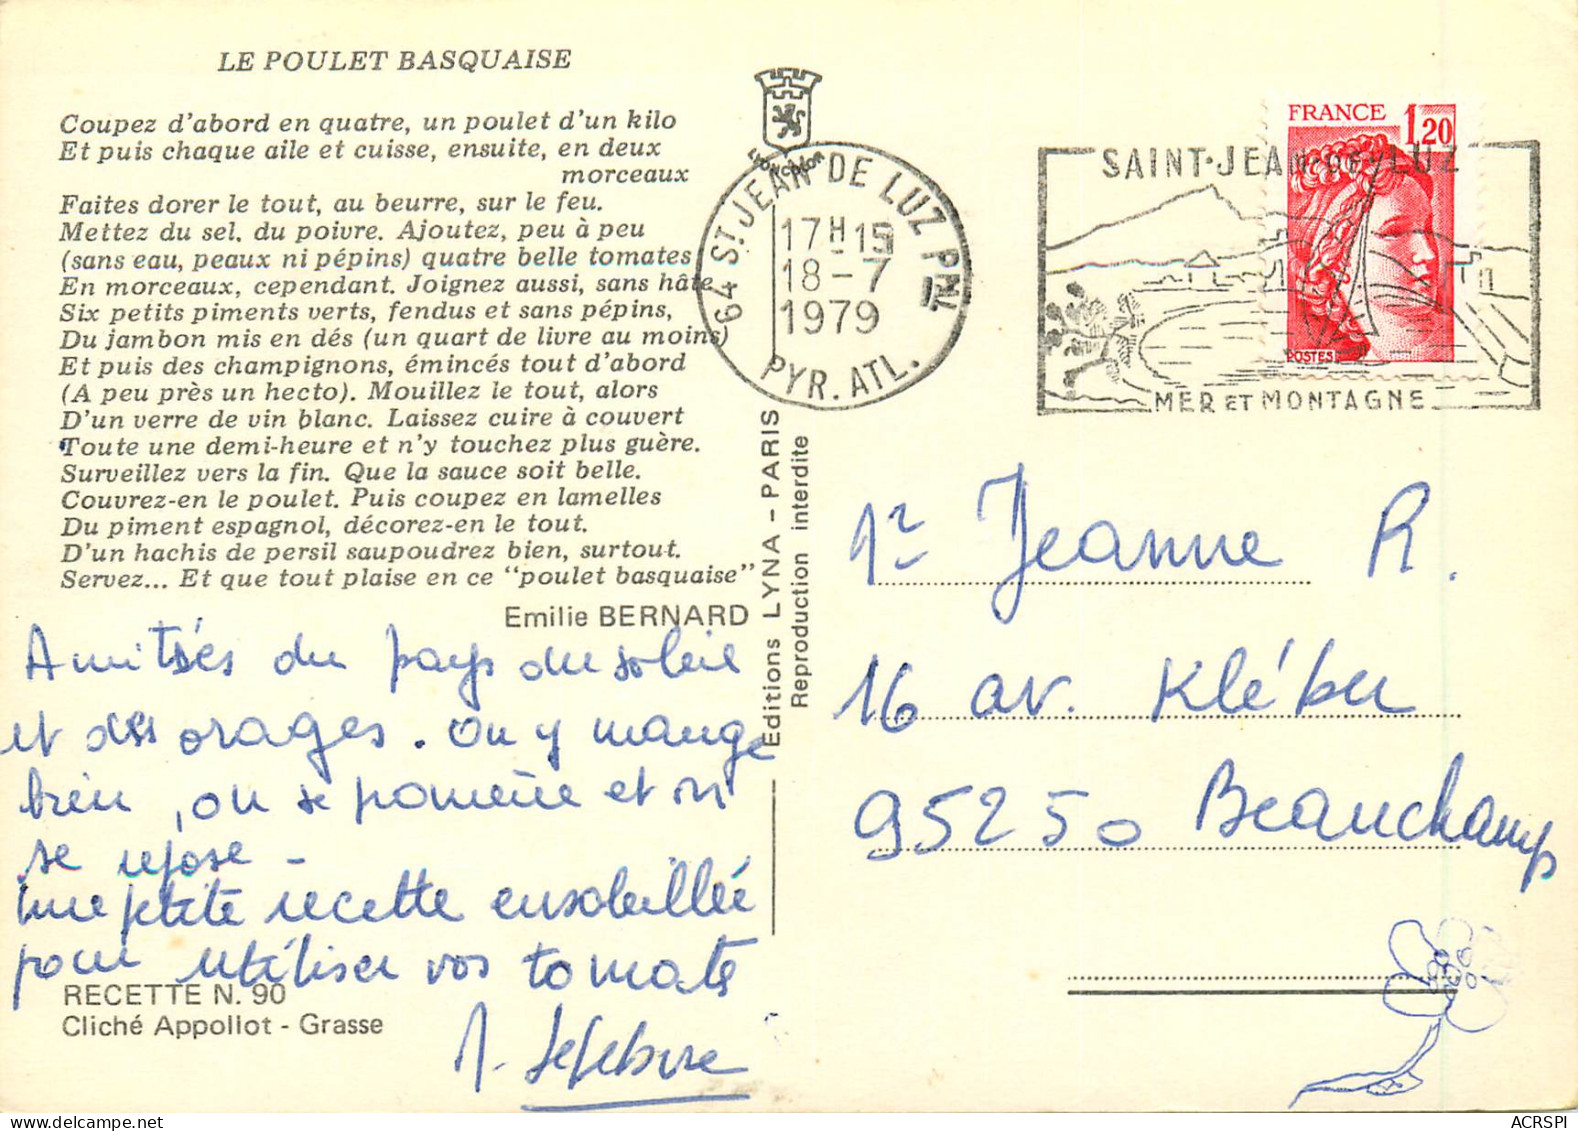 LE POULET BASQUAISE
Coupez d'abord en quatre, un poulet d'un kilo
Et puis chaque aile et cuisse, ensuite, en deux
morceaux
Faites dorer le tout, au beurre, sur le feu.
Mettez du sel, du poivre. Ajoutez, peu à peu
(sans eau, peaux ni pépins) quatre belle tomates
En morceaux, cependant. Joignez aussi, sans hâte
Six petits piments verts, fendus et sans pépins,
Du jambon mis en dés (un quart de livre au moins)
Et puis des champignons, émincés tout d'abord
(A peu près un hecto). Mouillez le tout, alors
D'un verre de vin blanc. Laissez cuire à couvert
Toute une demi-heure et n'y touchez plus guère.
Surveillez vers la fin. Que la sauce soit belle.
Couvrez-en le poulet. Puis coupez en lamelles
Du piment espagnol, décorez-en le tout.
D'un hachis de persil saupoudrez bien, surtout.
Servez... Et que tout plaise en ce "poulet basquaise"
Emilie BERNARD
Amitiés du pays du soleil
et des orages. On y mange
bien, on se promène et on
se repose -
Une petite recette ensoleillée
pour utiliser vos tomates
RECETTE N. 90
Cliché Appollot - Grasse
Lefebvre
Editions LYNA - PARIS
Reproduction interdite
LYONCOLOR
64 ST JEAN DE LUZ PPAL
17H15
18-7
1979
PYR. ATL.
FRANCE 1,20
POSTES
SAINT-JEAN-DE-LUZ
MER ET MONTAGNE
Jeanne R.
16 av. Kléber
95250 Beauchamp
ACRSPI